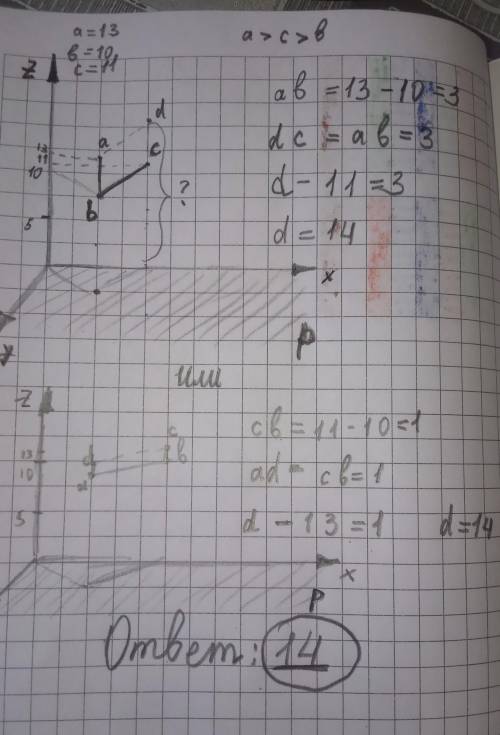 a = 13
в = 10
c = 11
a > c > в
Z
13
11
10
5
a
d
c
b
?
x
y
p
ав = 13 - 10 = 3
dc = ав = 3
d - 11 = 3
d = 14
или
Z
13
10
5
d
c
в
x
p
cв = 11 - 10 = 1
ad - cв = 1
d - 13 = 1 d = 14
Ответ: 14